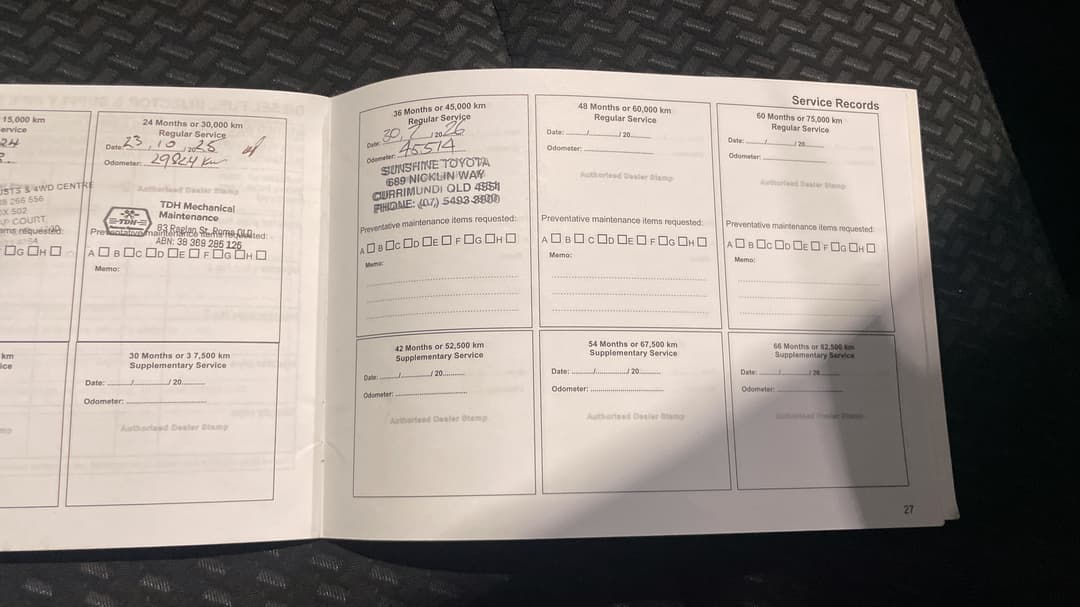 Service Records
15,000 km
ervice
24
USTS & 4WD CENTRE
OX 502
COURT
ems requested:
G H
km
ice
24 Months or 30,000 km
Regular Service
Date: 23 / 10 / 2025
Odometer: 29824 km
Authorised Dealer Stamp
TDH
TDH Mechanical
Maintenance
83 Raglan St, Roma QLD
Preventative maintenance items requested:
ABN: 38 369 286 126
A B C D E F G H
Memo:
30 Months or 3 7,500 km
Supplementary Service
Date: / / 20
Odometer:
Authorised Dealer Stamp
36 Months or 45,000 km
Regular Service
Date: 30 / 7 / 2026
Odometer: 45514
SUNSHINE TOYOTA
689 NICKLIN WAY
CURRIMUNDI QLD 4551
PHONE: (07) 5493 3900
Preventative maintenance items requested:
A B C D E F G H
Memo:
42 Months or 52,500 km
Supplementary Service
Date: / / 20
Odometer:
Authorised Dealer Stamp
48 Months or 60,000 km
Regular Service
Date: / / 20
Odometer:
Authorised Dealer Stamp
Preventative maintenance items requested:
A B C D E F G H
Memo:
54 Months or 67,500 km
Supplementary Service
Date: / / 20
Odometer:
Authorised Dealer Stamp
60 Months or 75,000 km
Regular Service
Date: / / 20
Odometer:
Authorised Dealer Stamp
Preventative maintenance items requested:
A B C D E F G H
Memo:
66 Months or 82,500 km
Supplementary Service
Date: / / 20
Odometer:
Authorised Dealer Stamp
27